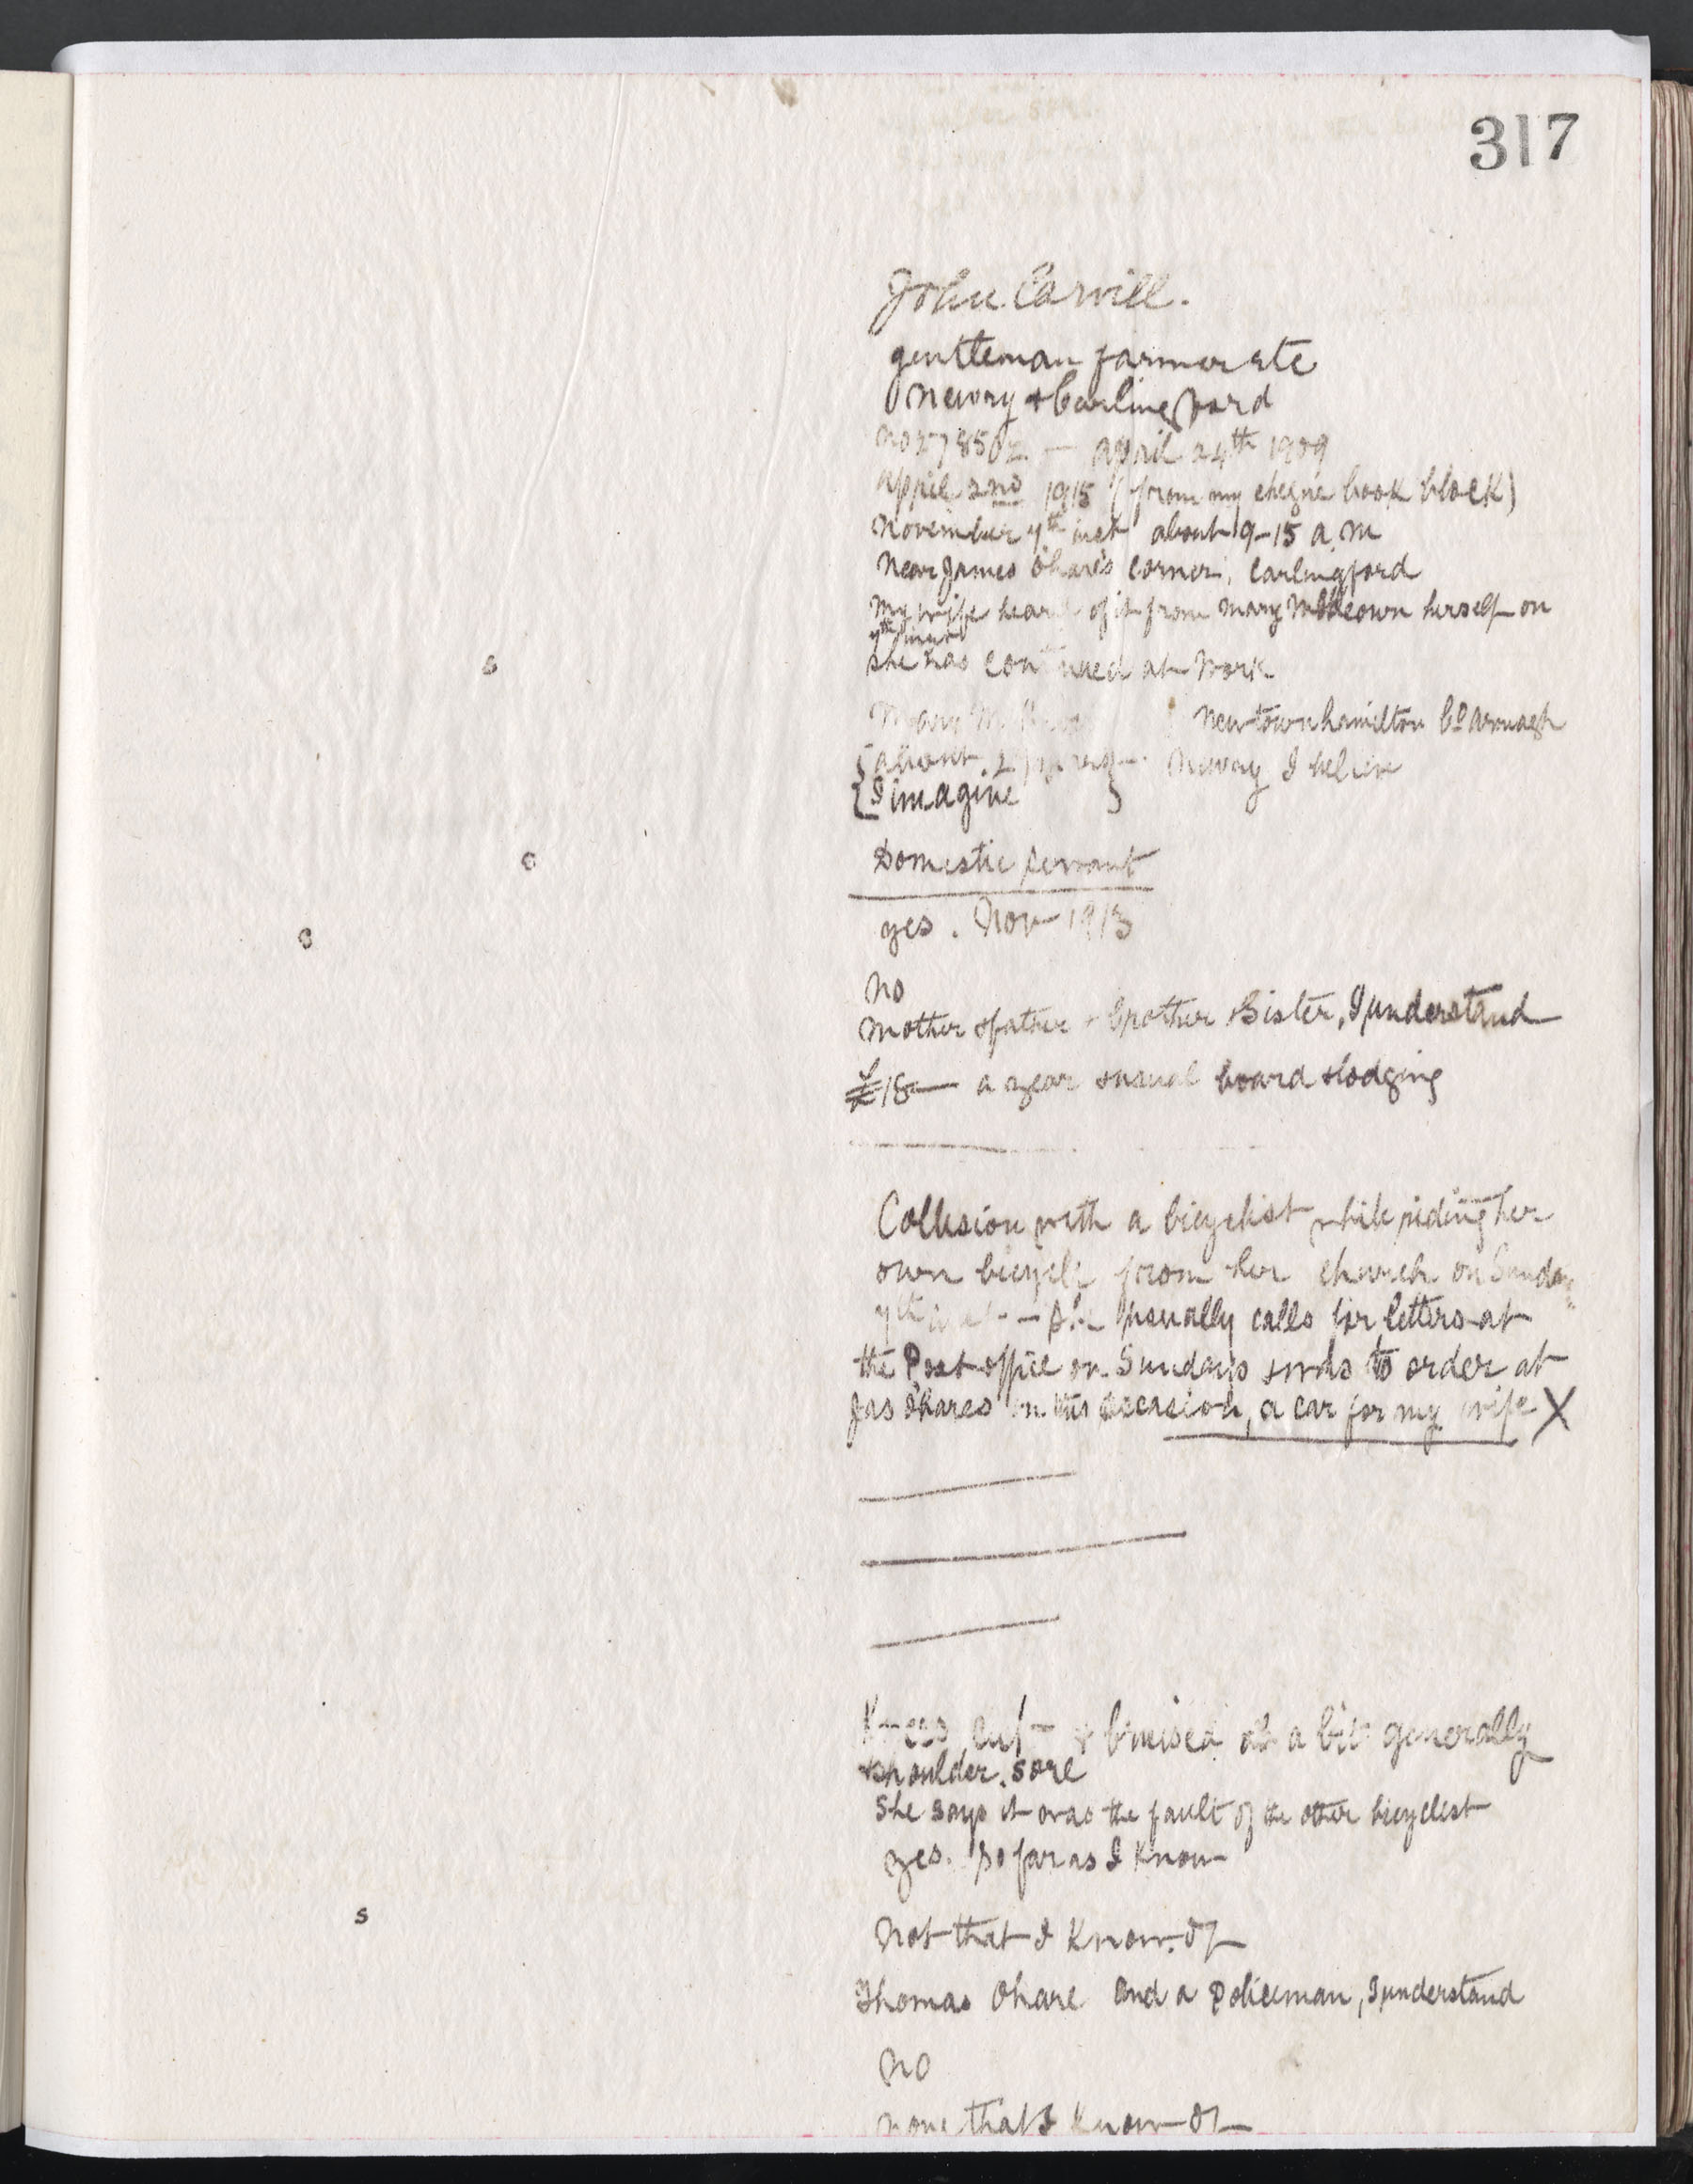 317
John Carvill.
gentleman farmer etc
Newry & Carlingford
April 24th 1909
April 2nd 1915 (from my cheque book block)
November 7th inst about 9-15 a.m
Near James O'hare's Corner, Carlingford
My wife heard of it from Mary McKeown herself on
7th inst
She has continued at work
Mary Newtownhamilton Co Armagh
{about Newry I believe
{I imagine }
Domestic servant
yes. Nov 1913
No
Mother & father & brother & Sister, I understand
£18— a year & usual board & lodging
Collision with a bicyclist while riding her
own bicycle from her church on Sunday
7th inst — She usually calls for letters at
the Post office on Sundays & to order at
Jas O'hares on this occasion, a car for my wife X
Knees cut & bruised a bit generally
& shoulder sore
She says it was the fault of the other bicyclist
yes. So far as I know
Not that I know of
Thomas Ohare and a Policeman, I understand
No
None that I know of
s